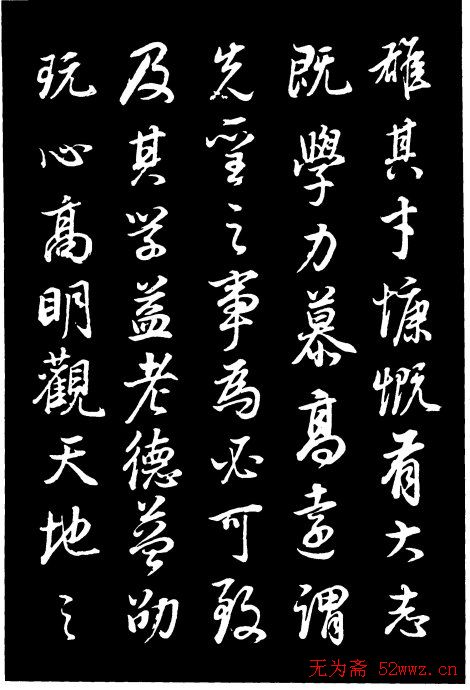 雄其才慷慨有大志
既學力慕高遠謂
先聖之事爲必可致
及其学益老德益劭
玩心高明觀天地之
无为斋 52wwz.cn